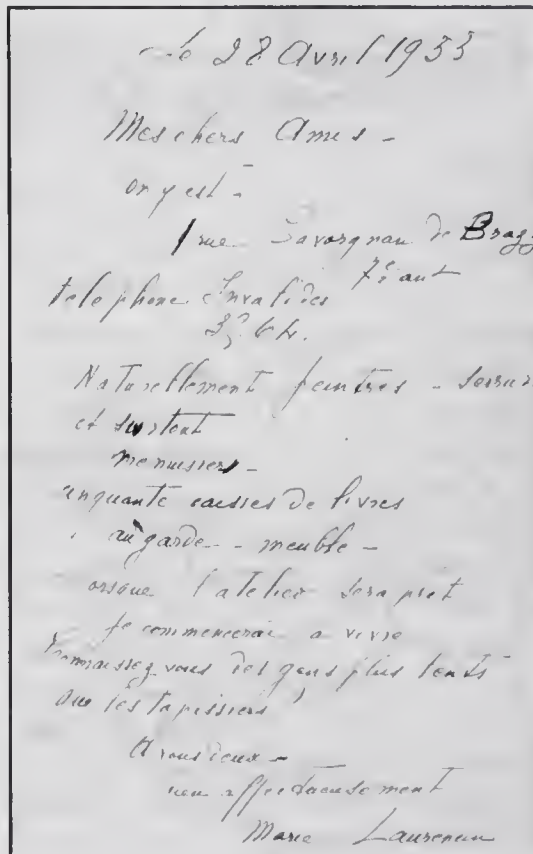 le 28 Avril 1933
Mes chers Amis -
on y est -
1 rue Savorgnan de Brazz
7e ar
telephone Invalides
Naturellement peintres - serrur
et surtout
menuisiers -
inquante caisses de livres
au garde - meuble -
orsque l'atelier sera pret
je commencerai a vivre
connaissez vous des gens plus lents
que les tapissiers !
A vous deux -
affectueusement
Marie Laurencin